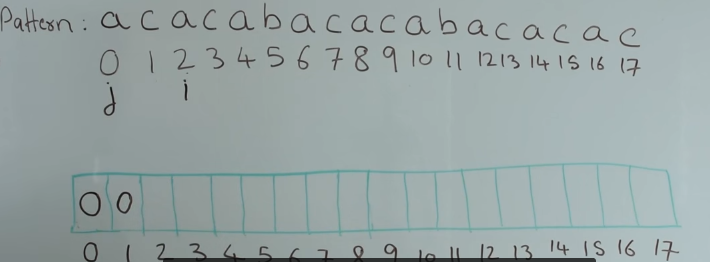 Pattern: a c a c a b a c a c a b a c a c a c
0 1 2 3 4 5 6 7 8 9 10 11 12 13 14 15 16 17
j i
0 0
0 1 2 3 4 5 6 7 8 9 10 11 12 13 14 15 16 17